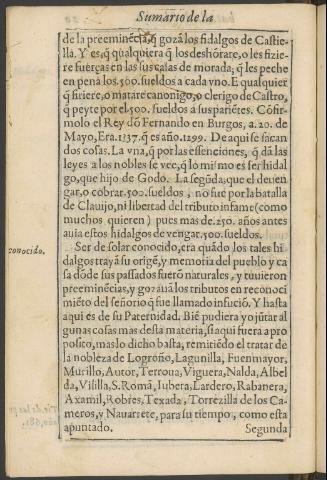 Sumario de la
de la preeminẽcia, q̃ gozã los fidalgos de Castie-
lla. Y es, q̃ qualquiera q̃ los deshõrare, o les fizie-
re fuerças en las sus casas de morada; q̃ les peche
en pena los 500. sueldos a cada vno. E qualquier
q̃ firiere, o matare canonigo, o clerigo de Castro,
q̃ peyte por el 500. sueldos a sus pariẽtes. Cõfir-
molo el Rey dõ Fernando en Burgos, a 20. de
Mayo, Era. 1337. q̃ es año. 1299. De aqui se sacan
dos cosas. La vna, q̃ por las essenciones, q̃ dã las
leyes a los nobles se vee, q̃ lo mismo es ser hidal
go, que hijo de Godo. La segũda; que el deuen
gar, o cobrar. 500. sueldos, no fue por la batalla
de Clauijo, ni libertad del tributo infame (como
muchos quieren) pues mas de 250. años antes
auia estos hidalgos de vengar. 500. sueldos.
conocido.
Ser de solar conocido, era quãdo los tales hi-
dalgos trayã su origẽ, y memoria del pueblo y ca
sa dõde sus passados fuerõ naturales, y tuuieron
preeminẽcias, y gozauã los tributos en reconoci
miẽto del señorio q̃ fue llamado infució. Y hasta
aqui es de su Paternidad. Biẽ pudiera yo jũtar al
gunas cosas mas desta materia, si aqui fuera a pro
posito, mas lo dicho basta, remitiẽdo el tratar de
la nobleza de Logroño, Lagunilla, Fuenmayor,
Murillo, Autor, Terroua, Viguera, Nalda, Albel
da, Vililla, S. Romã, Iubera, Lardero, Rabanera,
Axamil, Robres, Texada, Torrezilla de los Ca-
meros, y Nauarrete, para su tiempo, como esta
apuntado.
Segunda